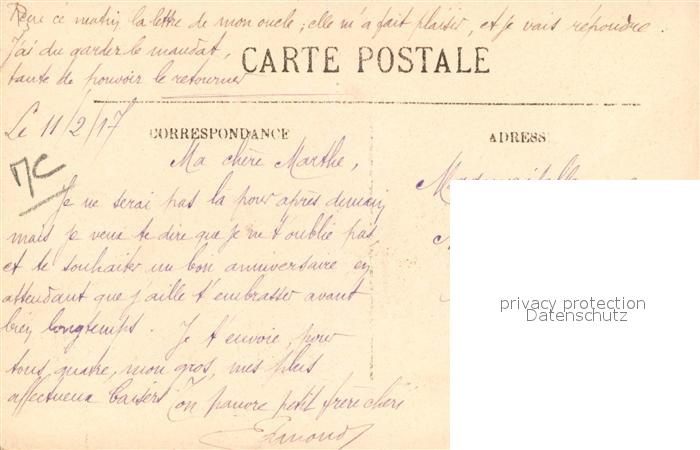 Reçu ce matin la lettre de mon oncle ; elle m'a fait plaisir, et je vais répondre.
J'ai du garder le mandat,
tante de pouvoir le retourner
CARTE POSTALE
Le 11/2/17
CORRESPONDANCE
ADRESSE
MC
Ma chère Marthe,
Je ne serai pas là pour après demain,
mais je veux te dire que je ne t'oublie pas
et te souhaiter un bon anniversaire en
attendant que j'aille t'embrasser avant
bien longtemps. Je t'envoie, pour
tous quatre, mon gros, mes plus
affectueux baisers Ton pauvre petit frère chéri
Edmond
Mademoiselle
privacy protection
Datenschutz